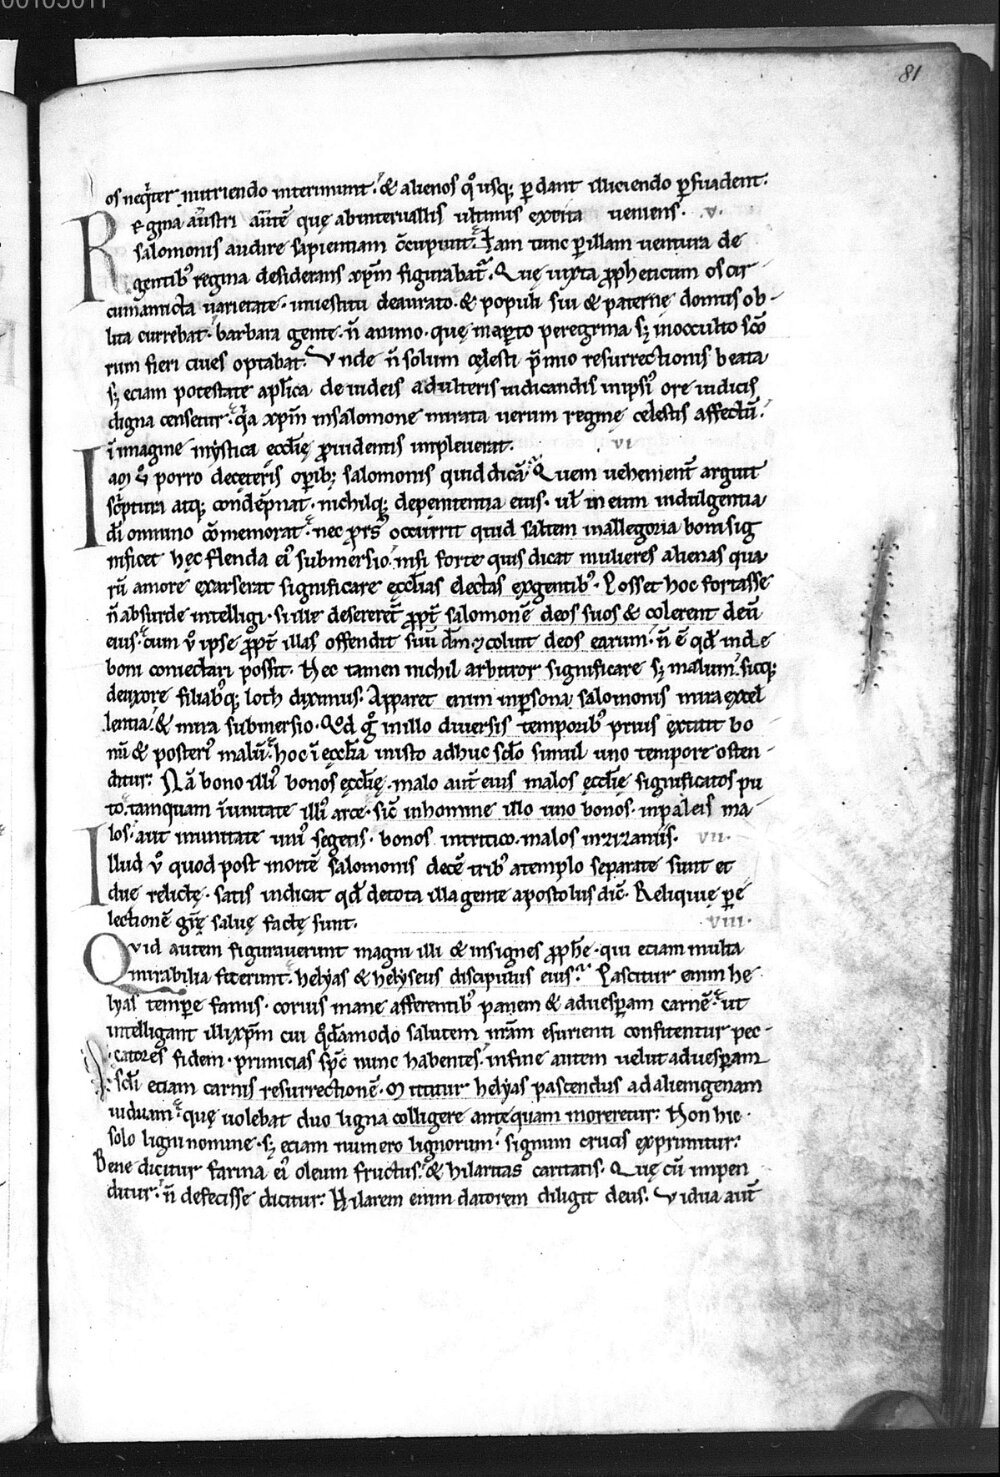 00103011
81
os neqͥter nutriendo interimunt. & alienos qͦusq; ꝑdant illiciendo ꝑsuadent.
Regina austri autē quę ab interuallis ultimis excita ueniens. v.
salomonis audire sapientiam c̄cupiuit. Jam tunc ꝑ illam uentura de
gentibꝰ regina desiderans xp̄m figurabat. Quę iuxta ꝓpheticum os cir
cumamicta uarietate. in uestitu deaurato. & populi sui & paternę domus ob
lita currebat. barbara gente. n̄ animo. quę in aꝑto peregrina sꝫ in occulto scō
rum fieri ciues optabat. Vnde n̄ solum cęlesti p̄mio resurrectionis beata
sꝫ eciam potestate aplica de iudeis adulteris iudicandis in ipsiꝰ ore iudicis
digna censetur. qͥa xp̄m in salomone mirata uerum reginę celestis affectū.
ī imagine mystica ęcclię ꝓuidentis impleuerat. vi
Jam ū porro de ceteris oꝑibꝫ salomonis quid dicā. Quem uehement͛ arguit
scͥptura atq; condēpnat. nichilq; de penitentia eius. ul̄ in eum indulgentia
dī omnino cōmemorat. nec ꝓrsꝰ occurrit quid saltem in allegoria boni sig
nificet hęc flenda eiꝰ submersio. nisi forte quis dicat mulieres alienas qua
rū amore exarserat significare ęcclias electas ex gentibꝰ. Posset hoc fortasse
n̄ absurde intelligi. si ille desererent̄ ꝓpt̄ salomonē deos suos & colerent deū
eius. cum ū ipse ꝓpt̄ illas offendit suū dm̄. & coluit deos earum. n̄ ē qd̄ inde
boni coniectari possit. Nec tamen nichil arbitror significare sꝫ malum. sicq;
de uxore filiabꝰq; loth diximus. Apparet enim in ꝑsona salomonis mira excel
lentia. & mira submersio. Qd gͦ in illo diuersis temporibꝰ prius extitit bo
nū & posteriꝰ malū. hoc ī ęcclia in isto adhuc sclo simul uno tempore osten
ditur. Nā bono illiꝰ bonos ęcclię. malo aut̄ eius malos ęcclię significatos pu
to. tamquam ī unitate illiꝰ aręe. sic̄ in homine illo uno bonos. in paleis ma
los. aut in unitate uniꝰ segetis. bonos in tritico. malos in zizaniis. vii.
Illud ū quod post mortē salomonis decē tribꝰ a templo separatę sunt et
duę relictę. satis indicat qd̄ de tota illa gente apostolus dic̄. Reliquię ꝑ e
lectionē grę saluę factę sunt. viii.
Quid autem figurauerunt magni illi & insignes ꝓphę. qui eciam multa
mirabilia fecerunt. helyas & helyseus discipulus eius. Pascitur enim he
lyas tempore famis. coruis mane afferentibꝰ panem & ad uesꝑam carnē. ut
intelligant illi xp̄m cui qͦdāmodo salutem nr̄am esurienti confitentur pec
catores fidem. primicias spc̄ nunc habentes. in fine autem uelut ad uesꝑam
scdi eciam carnis resurrectionē. Mittitur helyas pascendus ad alienigenam
uiduam. quę uolebat duo ligna colligere antequam moreretur. Non hic
solo ligni nomine. sꝫ eciam numero lignorum. signum crucis exprimitur.
Benedicitur farina eiꝰ oleum fructus. & hilaritas caritatis. Quę cū inpen
ditur. n̄ defecisse dicitur. Hilarem enim datorem diligit deus. Vidua aut̄